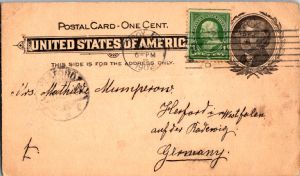 POSTAL CARD-ONE CENT.
UNITED STATES OF AMERICA
THIS SIDE IS FOR THE ADDRESS ONLY.
6-PM
Mrs. Mathilde Mumperow
Herford i/ Westfalen
auf der Radewig
Germany.